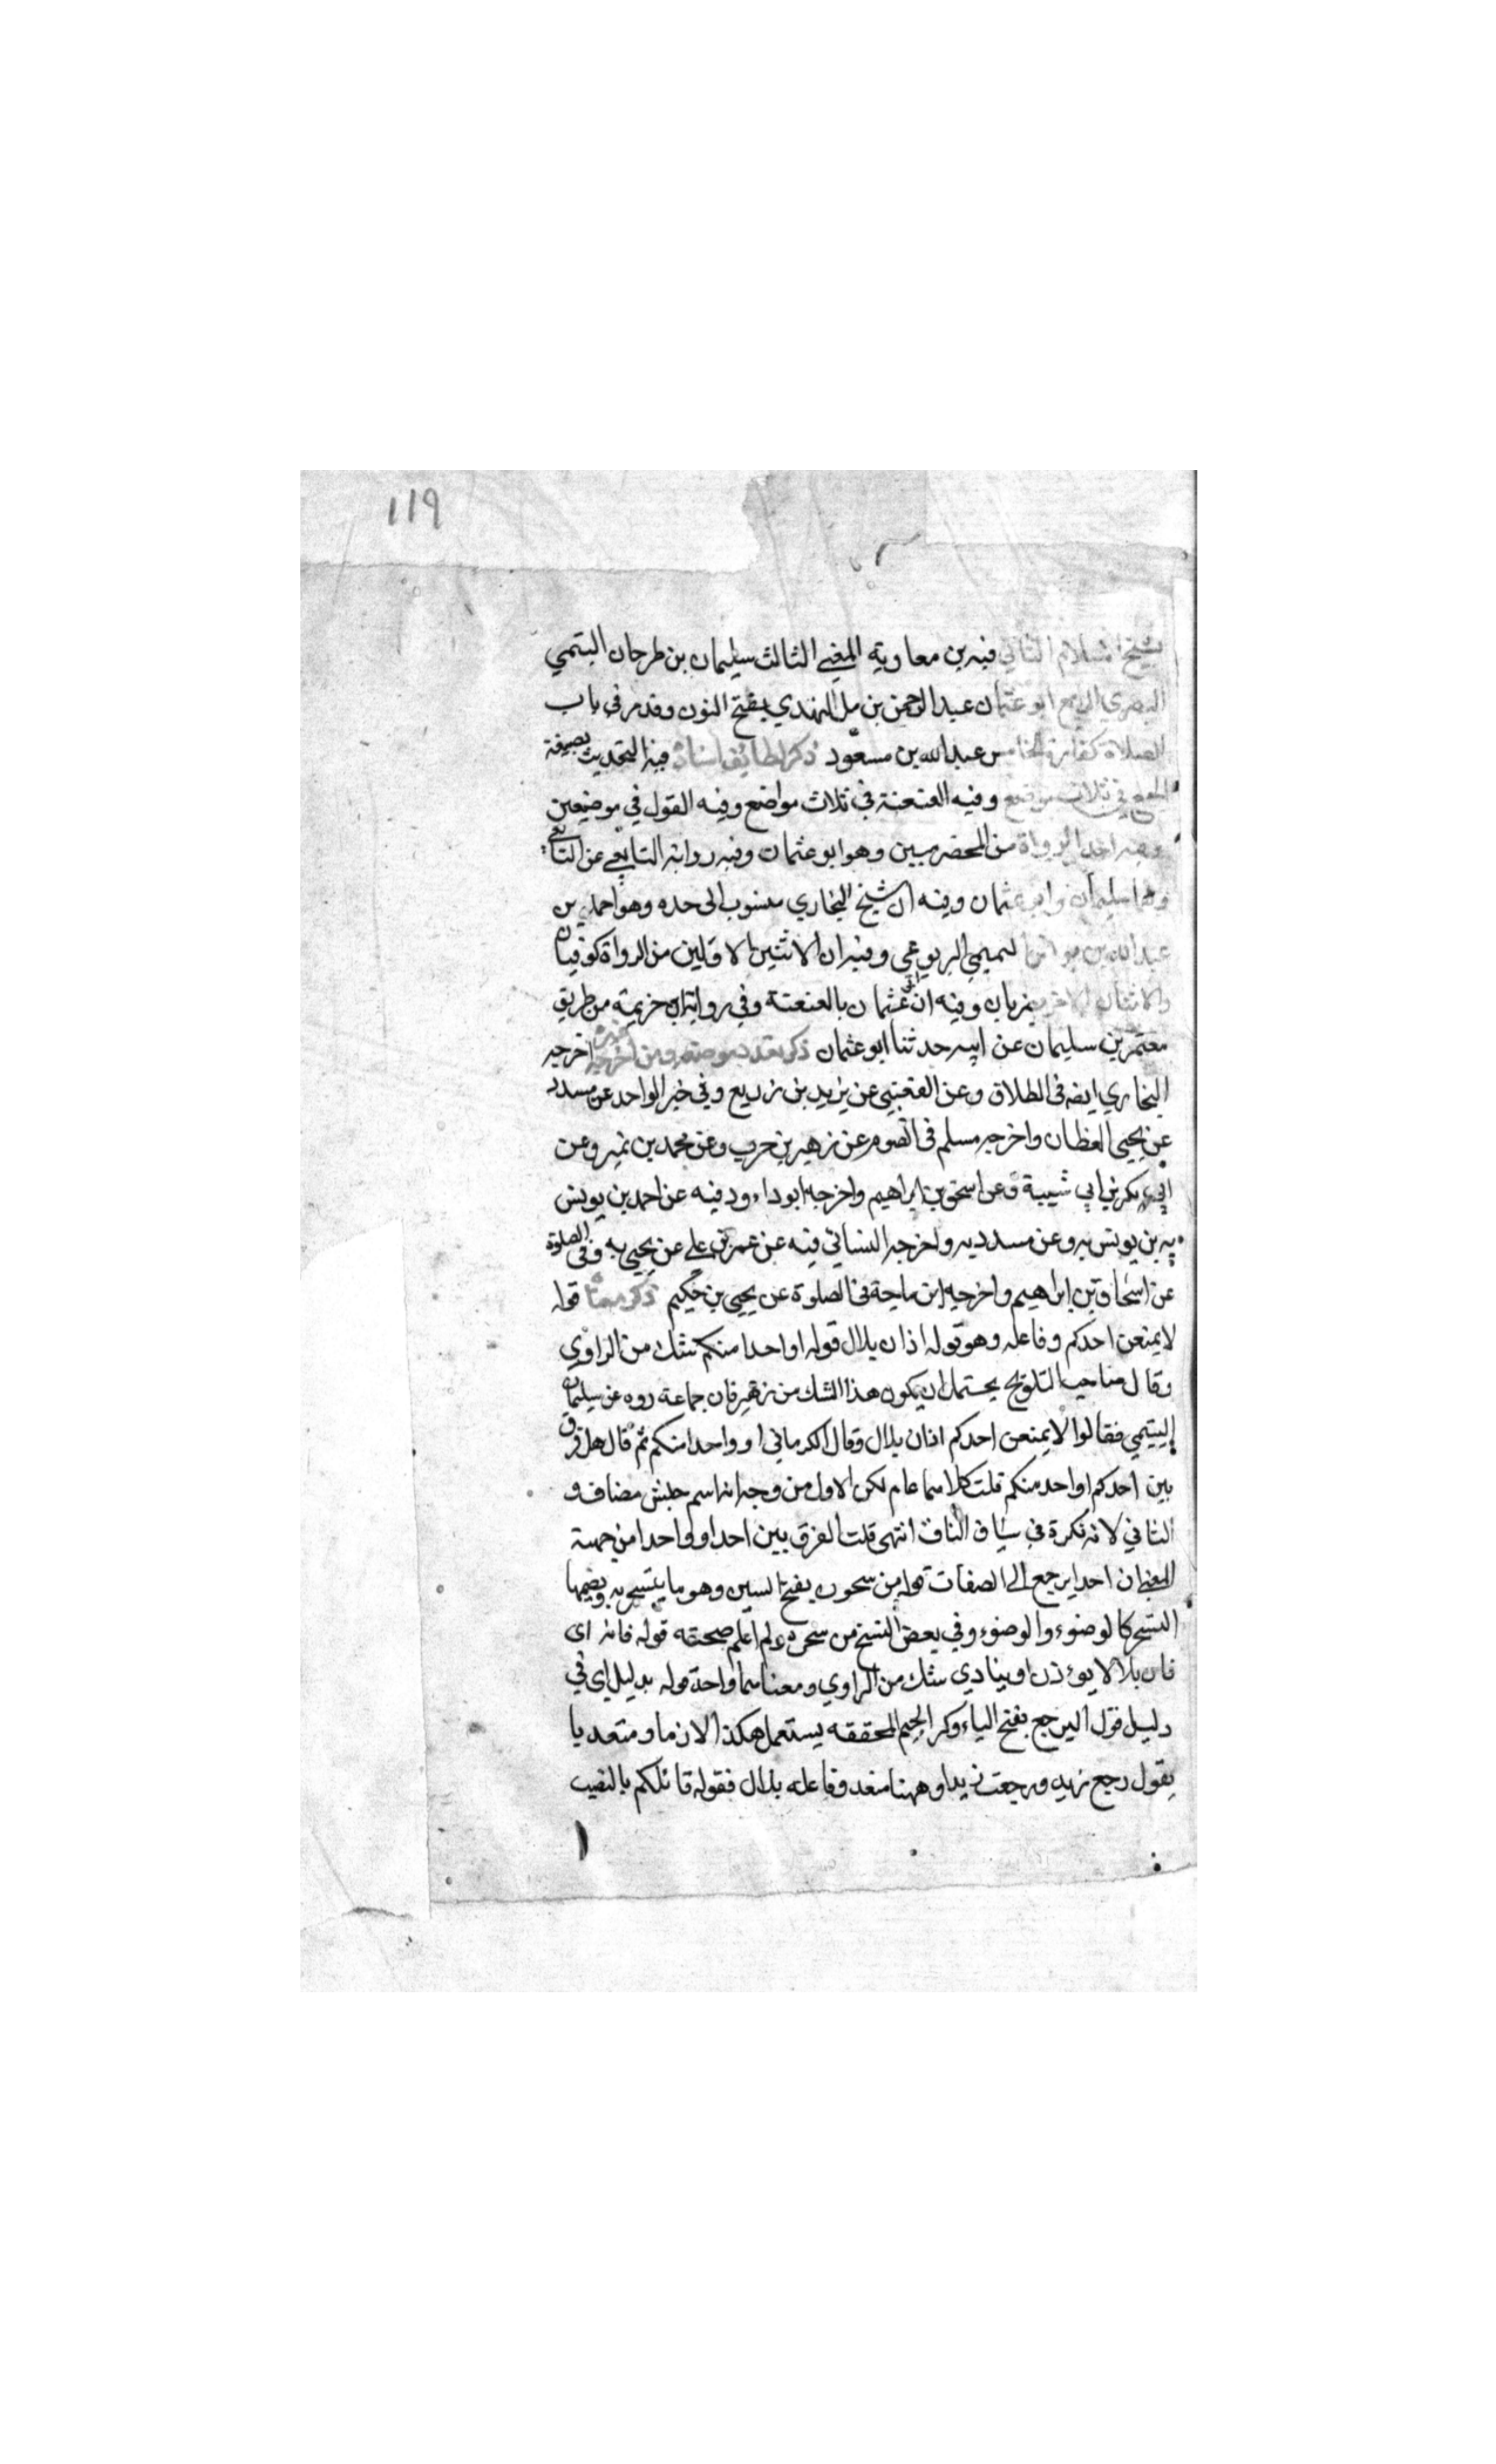 ١١٩
شيخ الاسلام الثاني فيه بن معاوية المعفي الثالث سليمان بن طرحان التيمي
البصري الرابع ابو عثمان عبد الرحمن بن مل النهدي بفتح النون وقد مر في باب
الصلاة كفارة الخامس عبد الله بن مسعود ذكر لطائف اسناده فيه التحديث بصيغة
الجمع في ثلاث مواضع وفيه العنعنة في ثلاث مواضع وفيه القول في موضعين
وفيه احد الرواة من المحضرميين وهو ابو عثمان وفيه رواية التابعي عن التابعي
وهما سليمان وابو عثمان وفيه ان شيخ البخاري منسوب الى جده وهو احمد بن
عبد الله بن يونس التميمي اليربوعي وفيه ان الاثنين الاولين من الرواة كوفيان
والاثنان الاخران بصريان وفيه ان عثمان بالعنعنة وفي رواية ابن خزيمة من طريق
معتمر بن سليمان عن ابيه حدثنا ابو عثمان ذكر تعدد موضعه ومن اخرجه غيره اخرجه
البخاري ايضه في الطلاق وعن القعنبي عن يزيد بن زريع وفي خبر الواحد عن مسدد
عن يحيى القطان واخرجه مسلم في الصوم عن زهير بن حرب وعن محمد بن نمير وعن
ابي بكر بن ابي شيبة وعن اسحق بن ابراهيم واخرجه ابو داود فيه عن احمد بن يونس
به بن يونس به وعن مسدد به واخرجه النسائي فيه عن عمر بن علي عن يحيى به وفي الصلوة
عن اسحاق بن ابراهيم واخرجه ابن ماجة في الصلوة عن يحيى بن حكيم ذكر معناه قوله
لا يمنعن احدكم وفاعله وهو قوله اذان بلال قوله او احدا منكم شك من الراوي
وقال صاحب التلويح يحتمل ان يكون هذا الشك من زهير فان جماعة رووه عن سليمان
التيمي فقالوا لا يمنعن احدكم اذان بلال وقال الكرماني او واحدا منكم ثم قال هل فرق
بين احدكم او احد منكم قلت كلاهما عام لكن الاول من وجه انه اسم جنس مضاف و
الثاني لانه نكرة في سياق الناف انتهى قلت الفرق بين احد او واحدا من جهة
المعنى ان احدا يرجع الى الصفات قوله من سحوره بفتح السين وهو ما يتسحر به وبضمها
التسحر كالوضوء والوضوء وفي بعض النسخ من سحره ولم اعلم صحته قوله فانه اى
فان بلالا يوءذن او ينادي شك من الراوي ومعناهما واحد قوله بدليل اى في
دليل قول اليرجع بفتح الياء وكسر الجيم المحققه يستعمل هكذا الازما ومتعديا
يقول رجع زيد ورجعت زيدا وههنا متعد وفاعله بلال فقوله قائلكم بالنصب